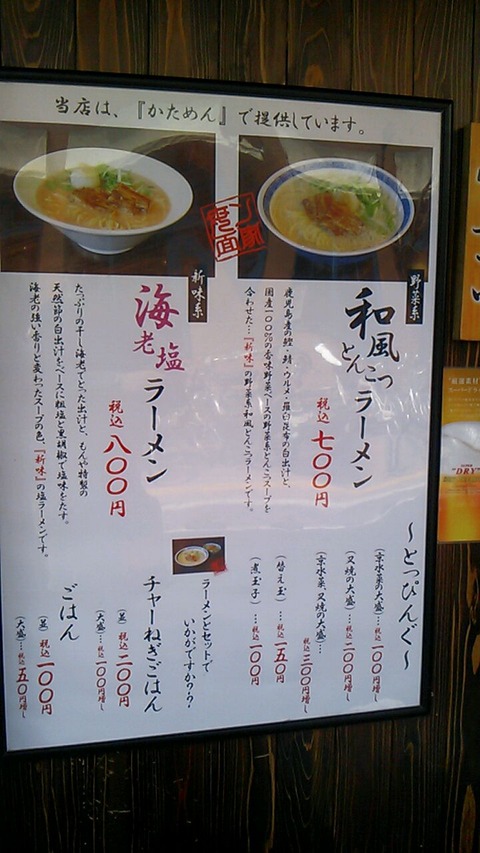 当店は、『かためん』で提供しています。
野菜系
和風とんこつラーメン
税込七〇〇円
鹿児島産の鰹・鯖・ウルメ・羅臼昆布の白出汁と、
国産100%の香味野菜ベースの野菜系とんこつスープを
合わせた…『新味』の野菜系和風とんこつラーメンです。
新味系
海老塩ラーメン
税込八〇〇円
たっぷりの干し海老でとった出汁と、もんや特製の
天然節の白出汁をベースに粗塩と黒胡椒で塩味をたす。
海老の強い香りと変わったスープの色、『新味』の塩ラーメンです。
〜とっぴんぐ〜
(京水菜の大盛)…税込一〇〇円増し
(叉焼の大盛)…税込二〇〇円増し
(京水菜、叉焼の大盛)…税込三〇〇円増し
(替え玉)…税込一五〇円
(煮玉子)…税込一〇〇円
ラーメンとセットで
いかがですか??
チャーねぎごはん
(並)税込二〇〇円
(大盛)…税込一〇〇円増し
ごはん
(並)税込一〇〇円
(大盛)…税込五〇円増し
"DRY"